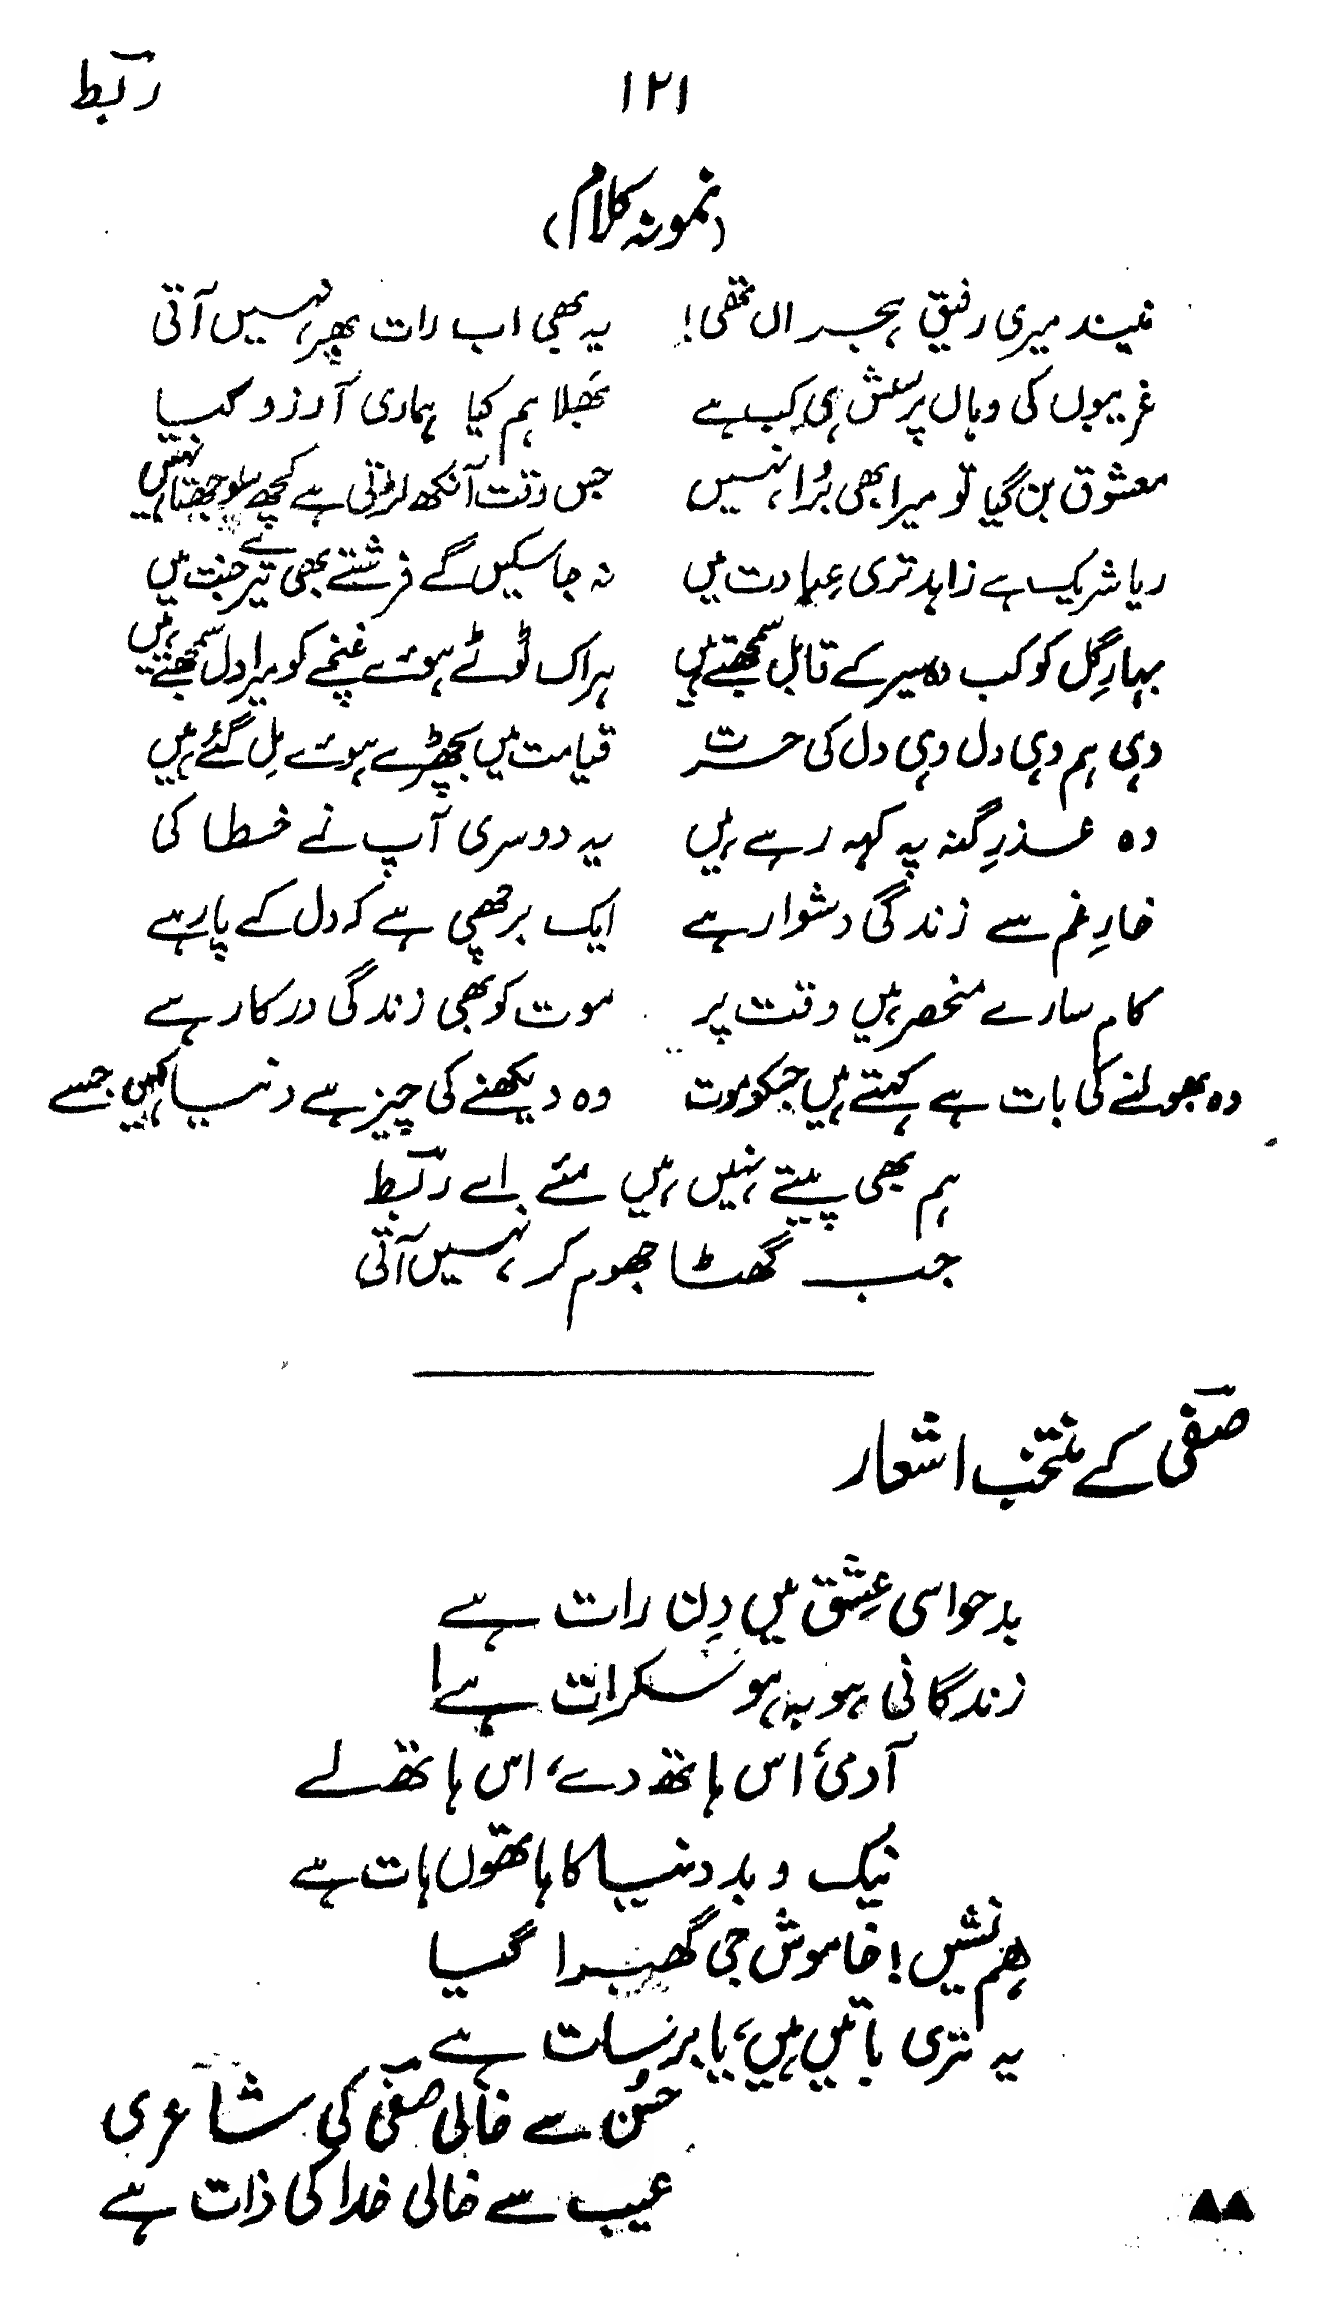 ربط ۱۲۱
(نمونہ کلام)
نیند میری رفیقِ ہجراں تھی! یہ بھی اب رات بھر نہیں آتی
غریبوں کی وہاں پرسش ہی کب ہے بھلا ہم کیا ہماری آرزو کیا
معشوق بن گیا تو میرا بھی بُرا نہیں جس وقت آنکھ لڑتی ہے کچھ سوجھتا نہیں
ریا شریک ہے زاہد تری عبادت میں نہ جا سکیں گے فرشتے بھی تیرے جنت میں
بہارِ گل کو کب وہ سیر کے قابل سمجھتے ہیں ہر اک ٹوٹے ہوئے غنچے کو میرا دل سمجھتے ہیں
وہی ہم وہی دل وہی دل کی حسرت قیامت میں بچھڑے ہوئے مِل گئے ہیں
وہ عذرِ گنہ پہ کہہ رہے ہیں یہ دوسری آپ نے خطا کی
خارِ غم سے زندگی دشوار ہے ایک برچھی ہے کہ دل کے پار ہے
کام سارے منحصر ہیں وقت پر موت کو بھی زندگی درکار ہے
وہ بھولنے کی بات ہے کہتے ہیں جسکو موت وہ دیکھنے کی چیز ہے دنیا کہیں جسے
ہم بھی پیتے نہیں ہیں مئے اے ربط
جب گھٹا جھوم کر نہیں آتی
صفی کے منتخب اشعار
بدحواسی عِشق میں دِن رات ہے
زندگانی ہو بہ ہو سکرات ہے!
آدمی، اس ہاتھ دے، اس ہاتھ لے
نیک و بد دنیا کا ہاتھوں ہات ہے
ہم نشیں! خاموش جی گھبرا گیا
یہ تری باتیں ہیں، یا برسات ہے
حسُن سے خالی صفی کی شاعری
عیب سے خالی خدا کی ذات ہے